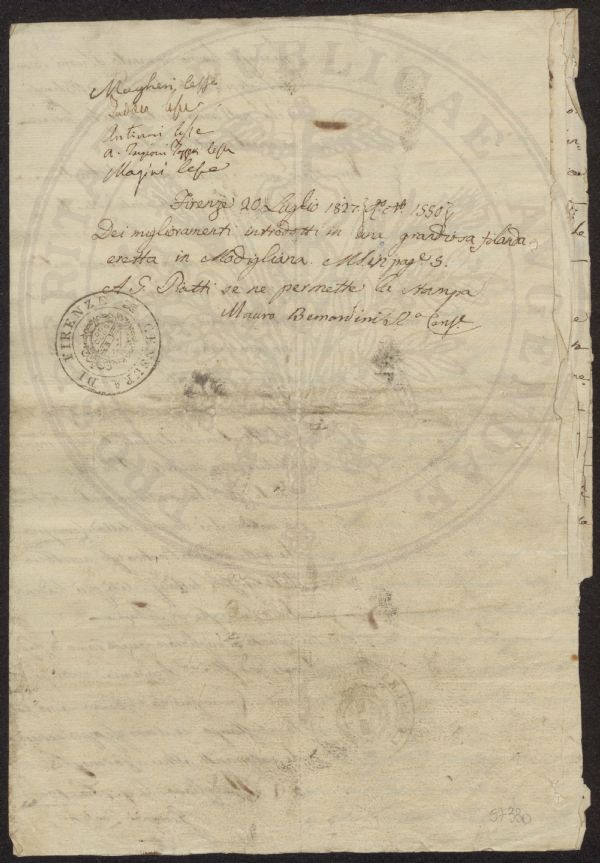 Magheri lesse
lesse
Antinori lesse
A. Targioni Tozzetti lesse
Magini lesse
Firenze 20 Luglio 1827 1550
Dei miglioramenti introdotti in una grandiosa filanda
eretta in Modigliana. MS. in pag. 3.
A G. Piatti se ne permette la stampa
Mauro Bernardini R.o Cens.e
CENSURA DI FIRENZE
PRO VTILITATE PVBLICAE
57380